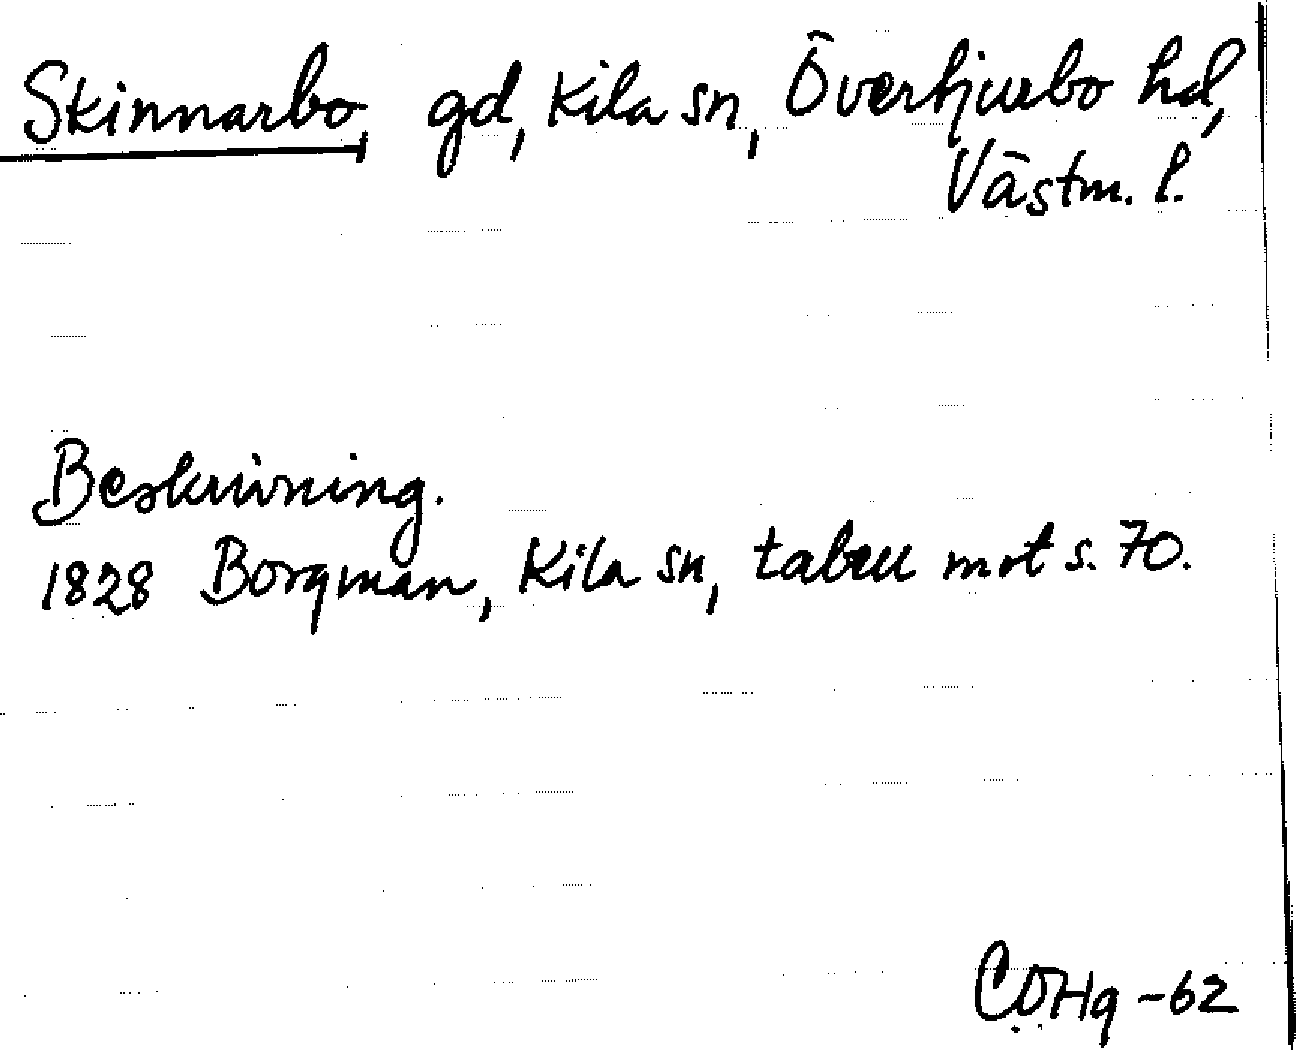 Skinnarbo, gd, Kila sn, Övertjurbo hd,
Västm. l.
Beskrivning.
1828 Borgman, Kila sn, tabell mot s. 70.
COHg -62